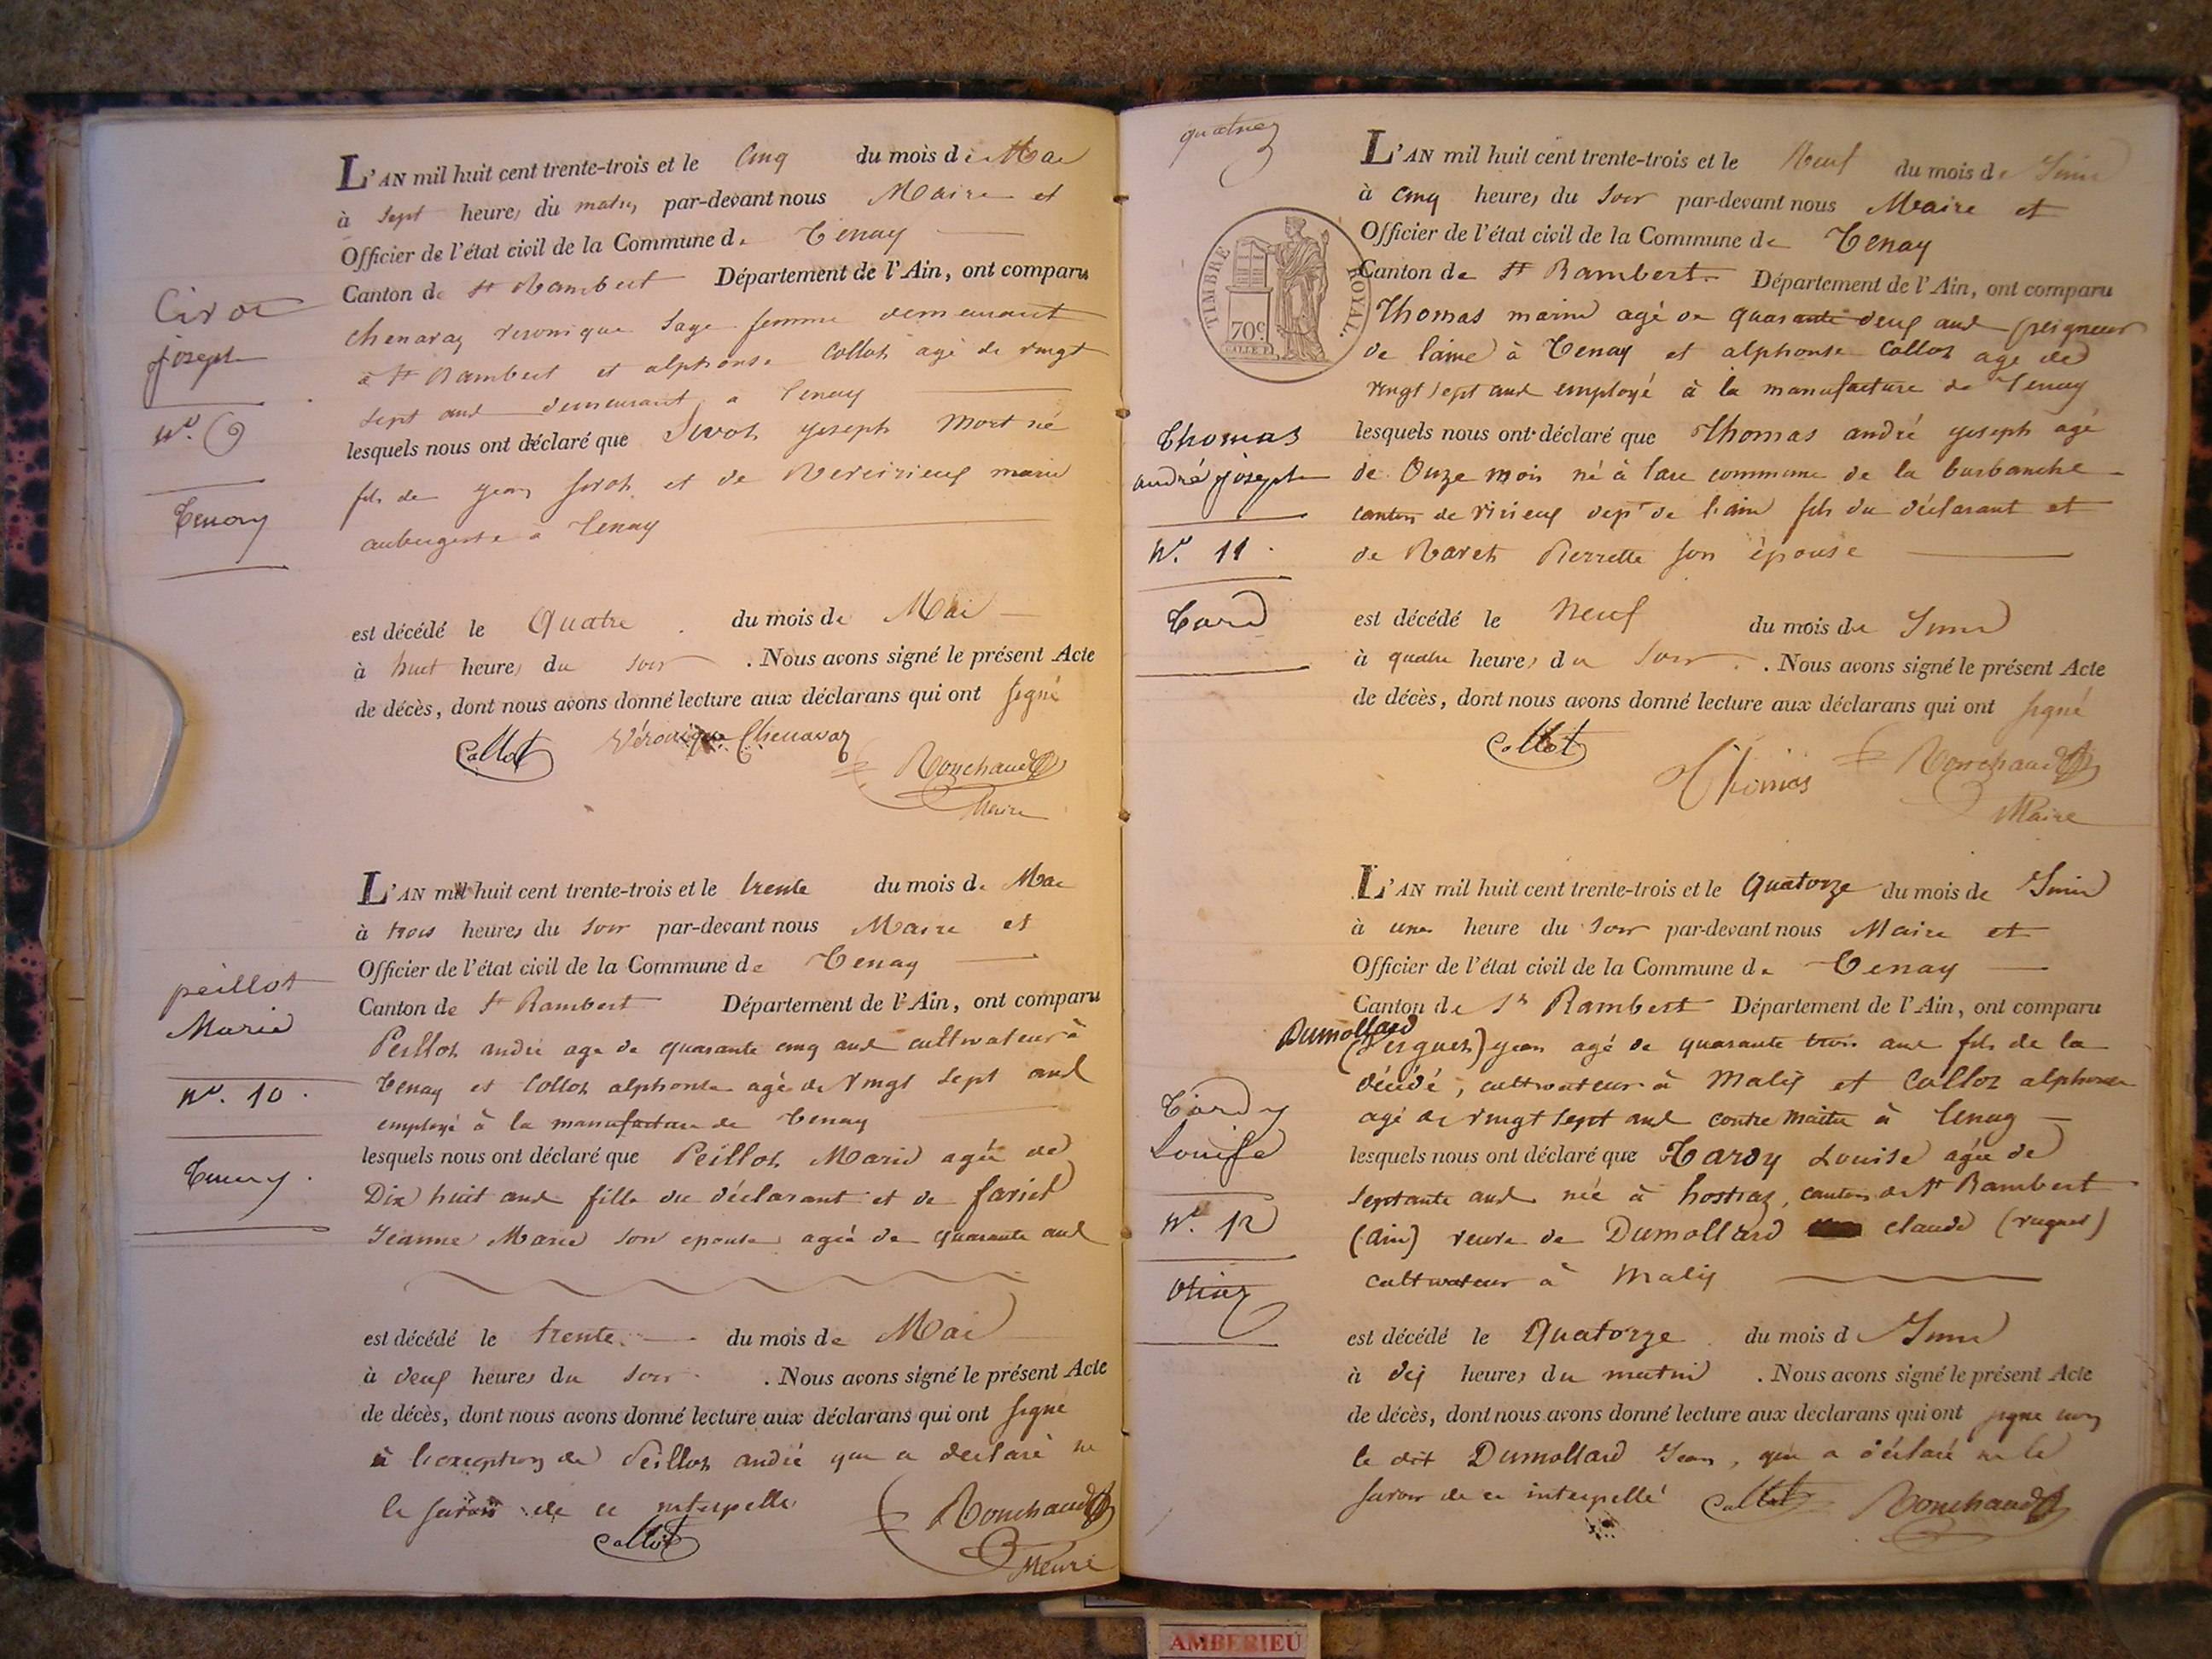 Civot
joseph
N.º 9
Tenay
L'AN mil huit cent trente-trois et le Cinq du mois de Mai
à Sept heures du matin par-devant nous Maire et
Officier de l'état civil de la Commune de Tenay
Canton de St Rambert Département de l'Ain, ont comparu
Chenavaz veronique Sage femme demeurant
a St Rambert et alphonse Collot agé de vingt
sept ans demeurant a Tenay
lesquels nous ont déclaré que Sivot joseph Mort né
fils de jean sivot et de marie
aubergiste a Tenay
est décédé le Quatre du mois de Mai
à huit heures du soir . Nous avons signé le présent Acte
de décès, dont nous avons donné lecture aux déclarans qui ont signé
Collot Véronique Chenavaz
Ronchaud
Maire
peillot
Marie
N.º 10.
Tenay.
L'AN mil huit cent trente-trois et le trente du mois de Mai
à trois heures du soir par-devant nous Maire et
Officier de l'état civil de la Commune de Tenay
Canton de St Rambert Département de l'Ain, ont comparu
Peillot andré age de quarante cinq ans cultivateur à
Tenay et Collot alphonse agé de vingt sept ans
employé à la manufacture de Tenay
lesquels nous ont déclaré que Peillot Marie agée de
Dix huit ans fille du déclarant et de
Jeanne Marie son epouse agée de quarante ans
est décédé le trente du mois de Mai
à deux heures du soir . Nous avons signé le présent Acte
de décès, dont nous avons donné lecture aux déclarans qui ont signe
à l'exception de Peillot andré qui a declaré ne
le savoir de ce interpelle
Collot
Ronchaud
Maire
quatre
TIMBRE ROYAL.
70c.
Thomas
andré joseph
N.º 11.
L'AN mil huit cent trente-trois et le Neuf du mois de Juin
à cinq heures du soir par-devant nous Maire et
Officier de l'état civil de la Commune de Tenay
Canton de St Rambert Département de l'Ain, ont comparu
Thomas marin agé de quarante deux ans peigneur
de laine à Tenay et alphonse Collot age de
vingt sept ans employé à la manufacture de Tenay
lesquels nous ont déclaré que Thomas andré joseph agé
de Onze mois né à commune de la burbanche
canton de virieux dept de l'ain fils du déclarant et
de Pierrette son épouse
est décédé le neuf du mois de Juin
à quatre heures du soir . Nous avons signé le présent Acte
de décès, dont nous avons donné lecture aux déclarans qui ont signé
Collot
Thomas
Ronchaud
Maire
Tardy
Louise
N.º 12
L'AN mil huit cent trente-trois et le Quatorze du mois de Juin
à une heure du soir par-devant nous Maire et
Officier de l'état civil de la Commune de Tenay
Canton de St Rambert Département de l'Ain, ont comparu
Dumollard
jean agé de quarante trois ans fils de la
décédé, cultivateur à Malix et Collot alphonse
agé de vingt sept ans contre maitre à Tenay
lesquels nous ont déclaré que Tardy Louise agée de
septante ans née à hostiaz, canton de St Rambert
(ain) veuve de Dumollard claude
cultivateur à Malix
est décédé le Quatorze du mois d Juin
à dix heures du matin . Nous avons signé le présent Acte
de décès, dont nous avons donné lecture aux declarans qui ont signe non
le dit Dumollard Jean, qui a déclaré ne le
savoir de ce interpellé Collot Ronchaud
AMBERIEU